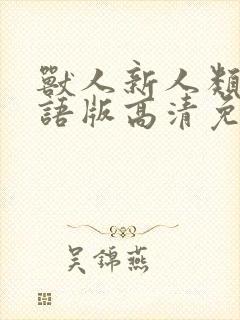 獸人新人類
語版高清免
吴錦燕